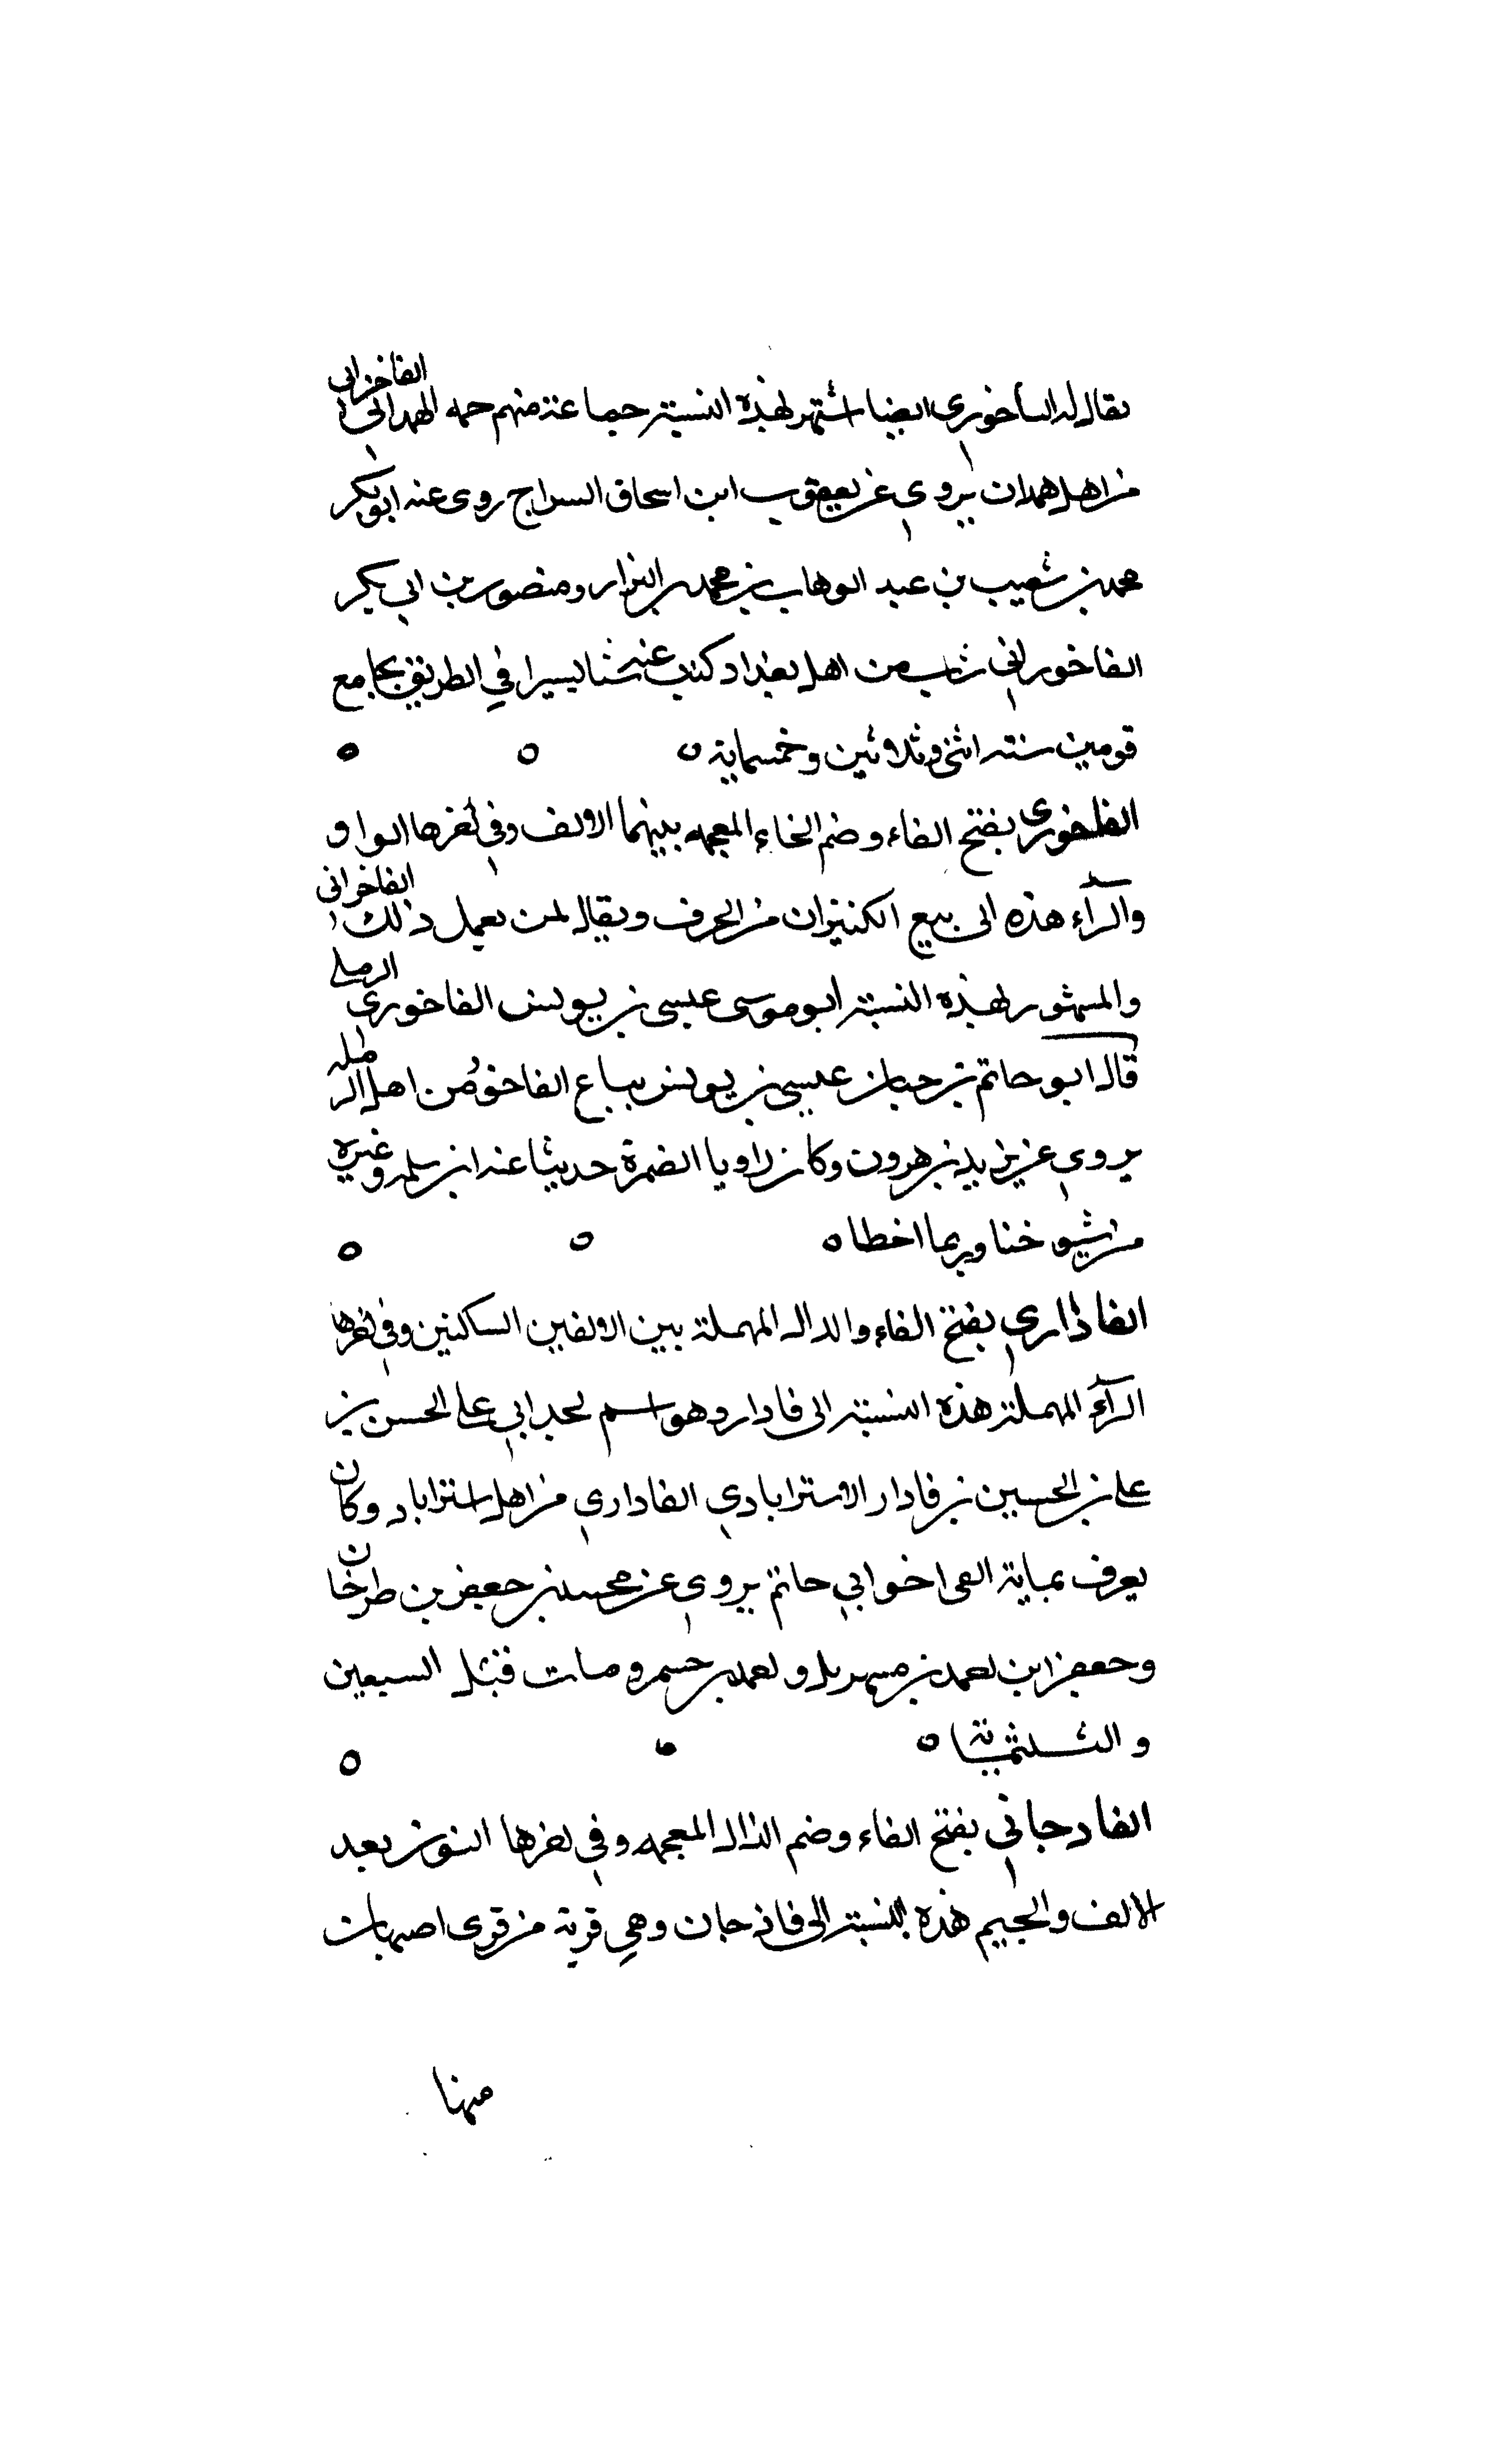 يقال له الفاخوري ايضا اشتهر بهذه النسبة جماعة منهم حمد الهمداني الفاخراني
من اهل همدان يروي عن يعقوب ابن اسحاق السراج روى عنه ابو بكر
محمد بن شعيب بن عبد الوهاب بن محمد البزار ومنصور بن ابي بكر
الفاخوراني شاب من اهل بغداد كتبت عنه شيئا يسيرا في الطريق بجامع
قومين سنة اثنى وثلاثين وخمسماية ه ه ه
الفاخوري بفتح الفاء وضم الخاء المعجمه بينهما الالف وفي اخرها الواو
والرآء هذه الى بيع الكيزان من الخرف ويقال لمن يعمل ذلك الفاخراني
والمشهور بهذه النسبة ابو موسى عيسى بن يونس الفاخوري الرملي
قال ابو حاتم بن حبان عيسى بن يونس بياع الفاخور من اهل الرمله
يروي عن يزيد بن هرون وكان راويا الضمرة حدثنا عنه ابن سلمه وغيره
من شيوخنا وربما اخطا ه ه ه
الفاذاري بفتح الفاء والدال المهملة بين الالفين الساكنين وفي اخرها
الرآء المهملة هذه النسبة الى فادار وهو اسم لجد ابي علي الحسن بن
علي بن الحسين بن فادار الاستراباذي الفاداري من اهل استراباد وكان
يعرف بمياية العى اخو ابي حاتم يروي عن محمد بن جعفر بن طرخان
وجعفر ابن احمد بن بهريل واحمد بن حسم ومات قبل السبعين
والثلثماية ه ه ه
الفادجاني بفتح الفاء وضم الذال المعجمه وفي اخرها النون بعد
الالف والجيم هذه النسبة الى فاذجان وهي قرية من قرى اصبهان
منها